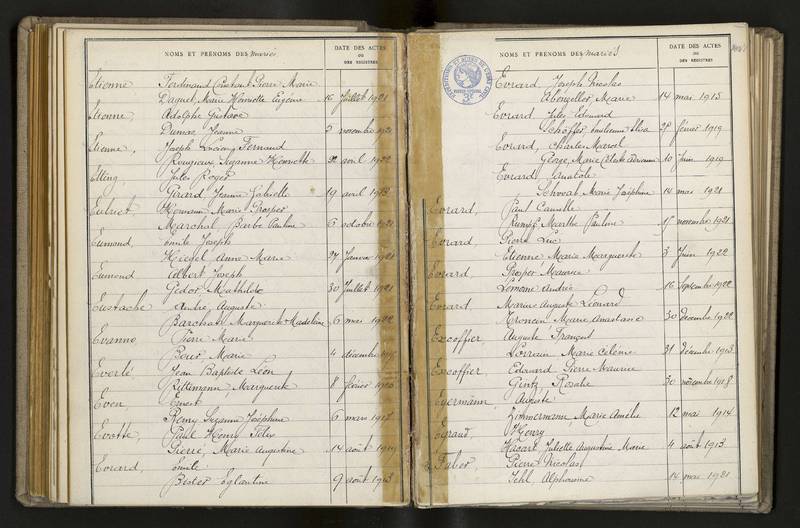 NOMS ET PRÉNOMS DES mariés
DATE DES ACTES
OU
DES REGISTRES
Etienne Ferdinand Constant Pierre Marie
Daguet, Marie Henriette Eugénie 16 Juillet 1921
Etienne, Adolphe Gustave
Dumas, Jeanne 2 novembre 1921
Etienne, Joseph Lucien Fernand
Rougieux, Suzanne Henriette 22 avril 1922
Etting, Jules Roger
Girard, Jeanne Gabrielle 19 avril
Romain Marie Prosper
Marchal, Barbe Pauline 6 octobre 1921
Eumond, Emile Joseph
Kiegel Anne Marie 27 Janvier 1921
Eumond Albert Joseph
Gédor Mathilde 30 Juillet 1921
Eustache André, Auguste
Marguerite Madeleine 6 mai 1922
Evanno Pierre Marie
Marie 4 décembre
Everlé Jean Baptiste Léon
Rittimann, Marguerite 8 février
Even, Ernest
Remy Suzanne Joséphine 6 mars
Evotte, Paul Henry
Pierre, Marie Augustine 14 août
Evrard, Emile
Eglantine 9 août 1913
NOMS ET PRÉNOMS DES mariés
DATE DES ACTES
OU
DES REGISTRES
Evrard, Joseph Nicolas
Marie 14 mai 1915
Evrard, Jules Edouard
Elisa 27 février 1919
Evrard, Charles Marcel
George, Marie 10 Juin 1919
Evrard, Anatole
Schwab Marie Joséphine 14 mai 1921
Evrard, Paul Camille
Marthe Pauline novembre 1921
Evrard Pierre Luc
Etienne Marie Marguerite 3 Juin 1922
Evrard Prosper Maurice
Lemoine Andrée 16 Septembre 1922
Evrard, Marius Auguste Léonard
Marie Anastasie 30 décembre 1922
Excoffier, Auguste François
Lorrain Marie Célénie 31 décembre 1913
Excoffier, Edouard Pierre Maurice
Gintz Rosalie 30 novembre 1918
Eyermann, Auguste
Zimmermann, Marie Amélie 12 mai 1914
Eyraud, Henry
Juliette Augustine Marie 4 août 1913
Faber, Pierre Nicolas
Jehl, Alphonsine 14 mai 1921